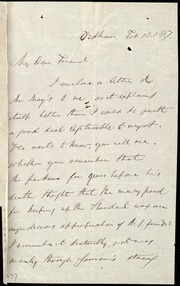 Dedham Feb. 10. 1857.
My dear Friend
I enclose a letter of
Mr May's to me, as it explains
itself better than I could do &
a good deal
He wants to know, you will see,
whether you remember that
Mr Jackson for years before his
death thought that the money paid
for keeping up the Standard was an
injudicious appropriation of A. S. funds.
I remember it distinctly, yet
mainly through Garrison's strong